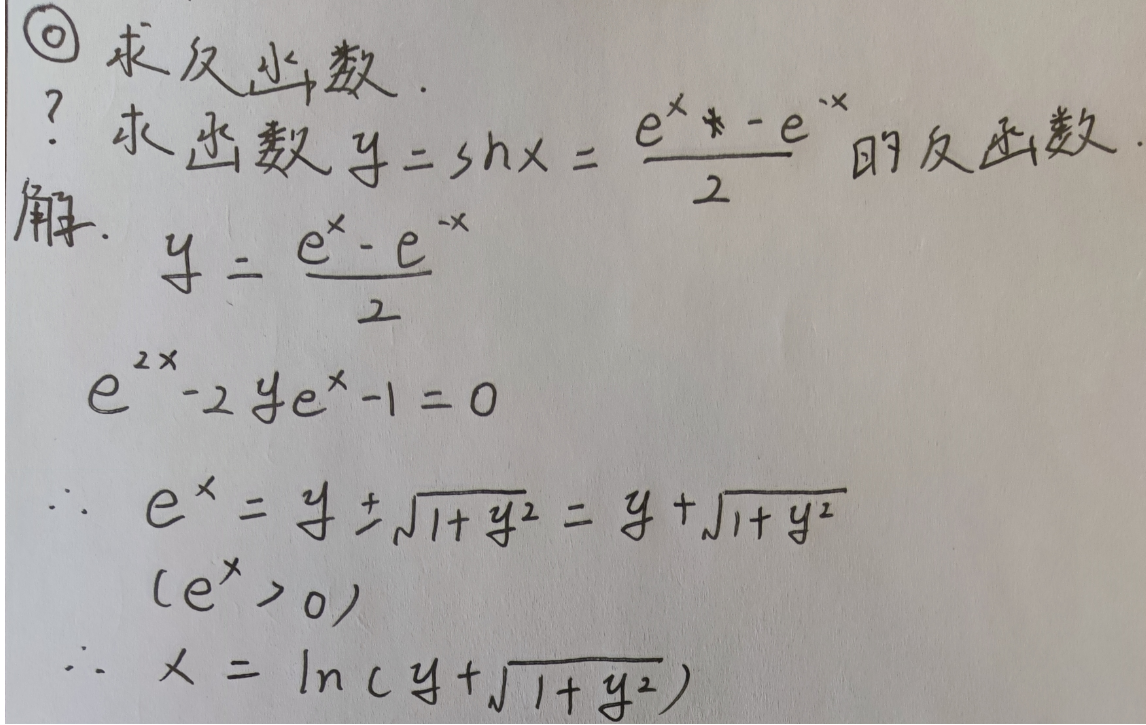 ◎ 求反函数.
? 求函数 y = shx = (e^x * - e^-x)/2 的反函数.
解. y = (e^x - e^-x)/2
e^2x - 2ye^x - 1 = 0
∴ e^x = y ± √(1+y²) = y + √(1+y²)
(e^x > 0)
∴ x = ln(y + √(1+y²))